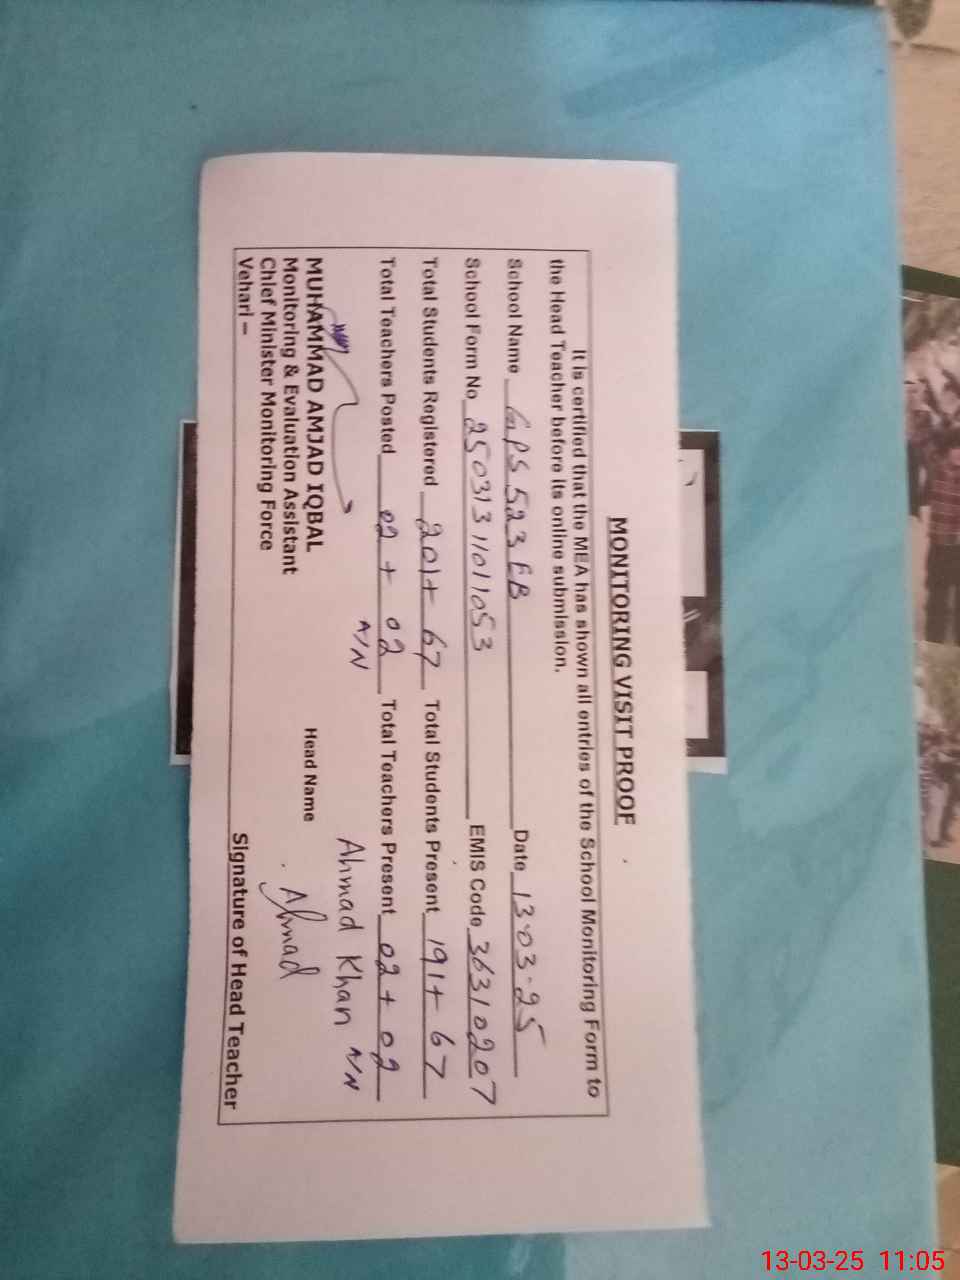 MONITORING VISIT PROOF
It is certified that the MEA has shown all entries of the School Monitoring Form to
the Head Teacher before its online submission.
School Name GPS 523 EB Date 13-03-25
School Form No 25031311011053 EMIS Code 36310207
Total Students Registered 201+67 Total Students Present 191+67
Total Teachers Posted 02 + 02 Total Teachers Present 02 + 02
N/N
Ahmad Khan N/N
MUHAMMAD AMJAD IQBAL Head Name
Monitoring & Evaluation Assistant Ahmad
Chief Minister Monitoring Force
Vehari – Signature of Head Teacher
13-03-25 11:05